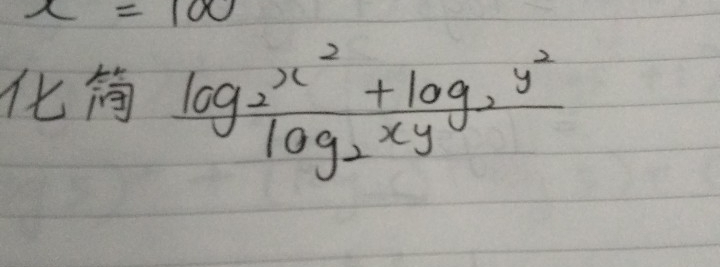 x = 100
化简 log₂x² + log₂y²
log₂xy